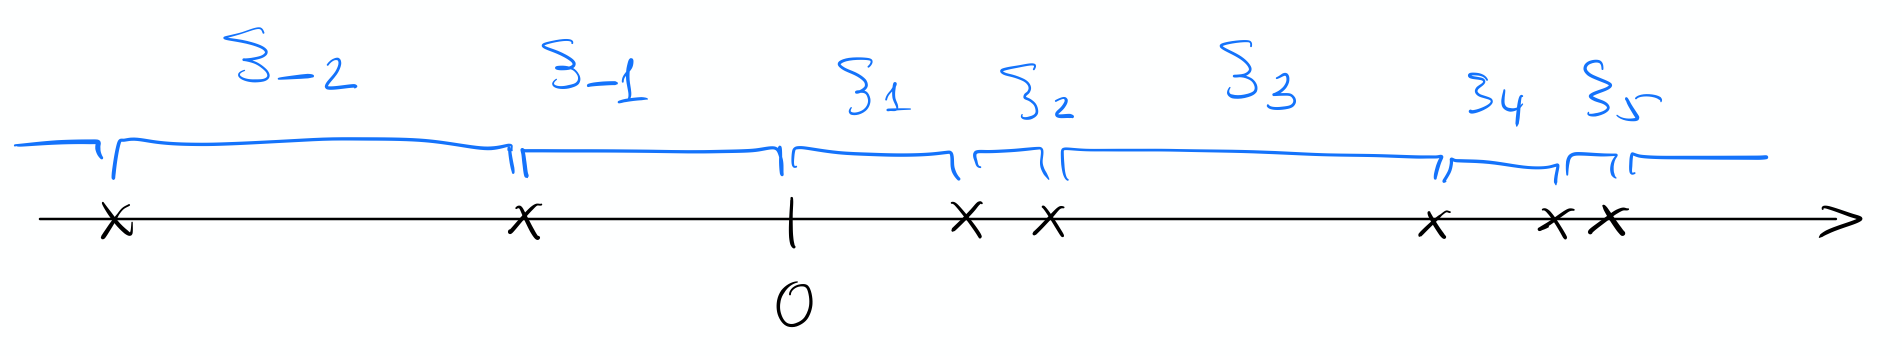 ξ₋₂ ξ₋₁ ξ₁ ξ₂ ξ₃ ξ₄ ξ₅
0